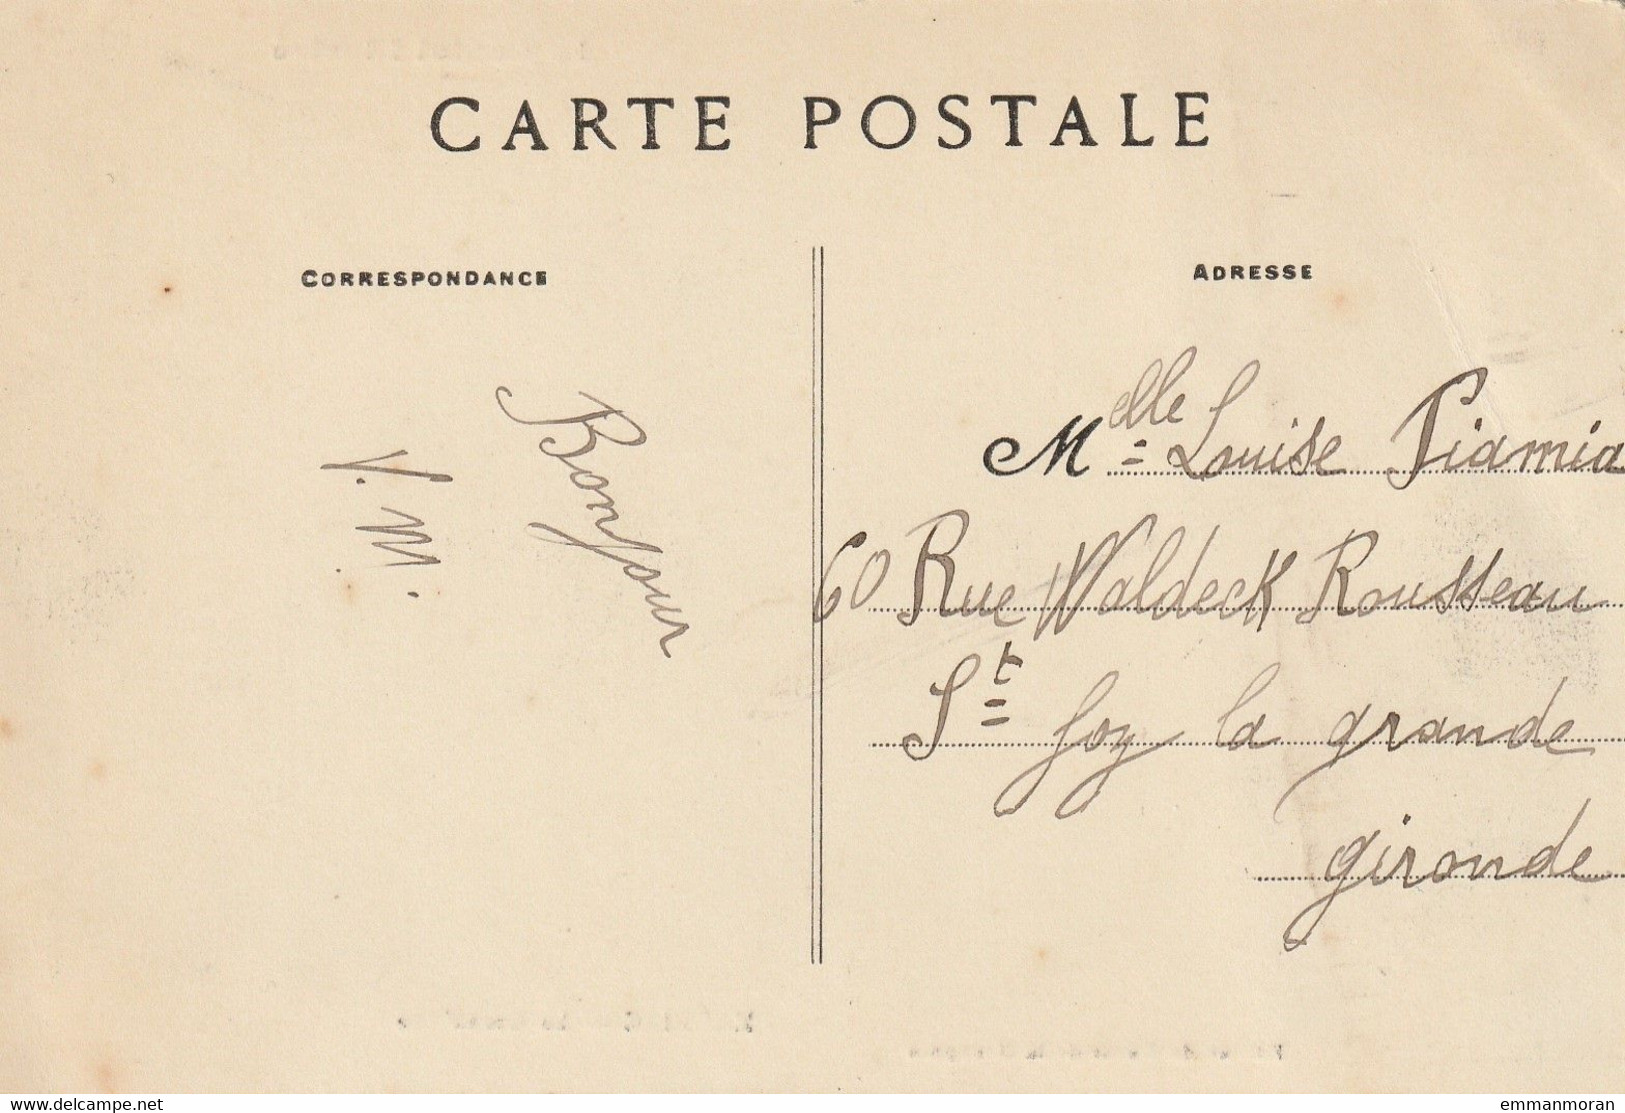 CARTE POSTALE
CORRESPONDANCE
Bonjour
V. M.
ADRESSE
Melle Louise
60 Rue Waldeck Rousseau
St foy la grande
gironde
www.delcampe.net
emmanmoran